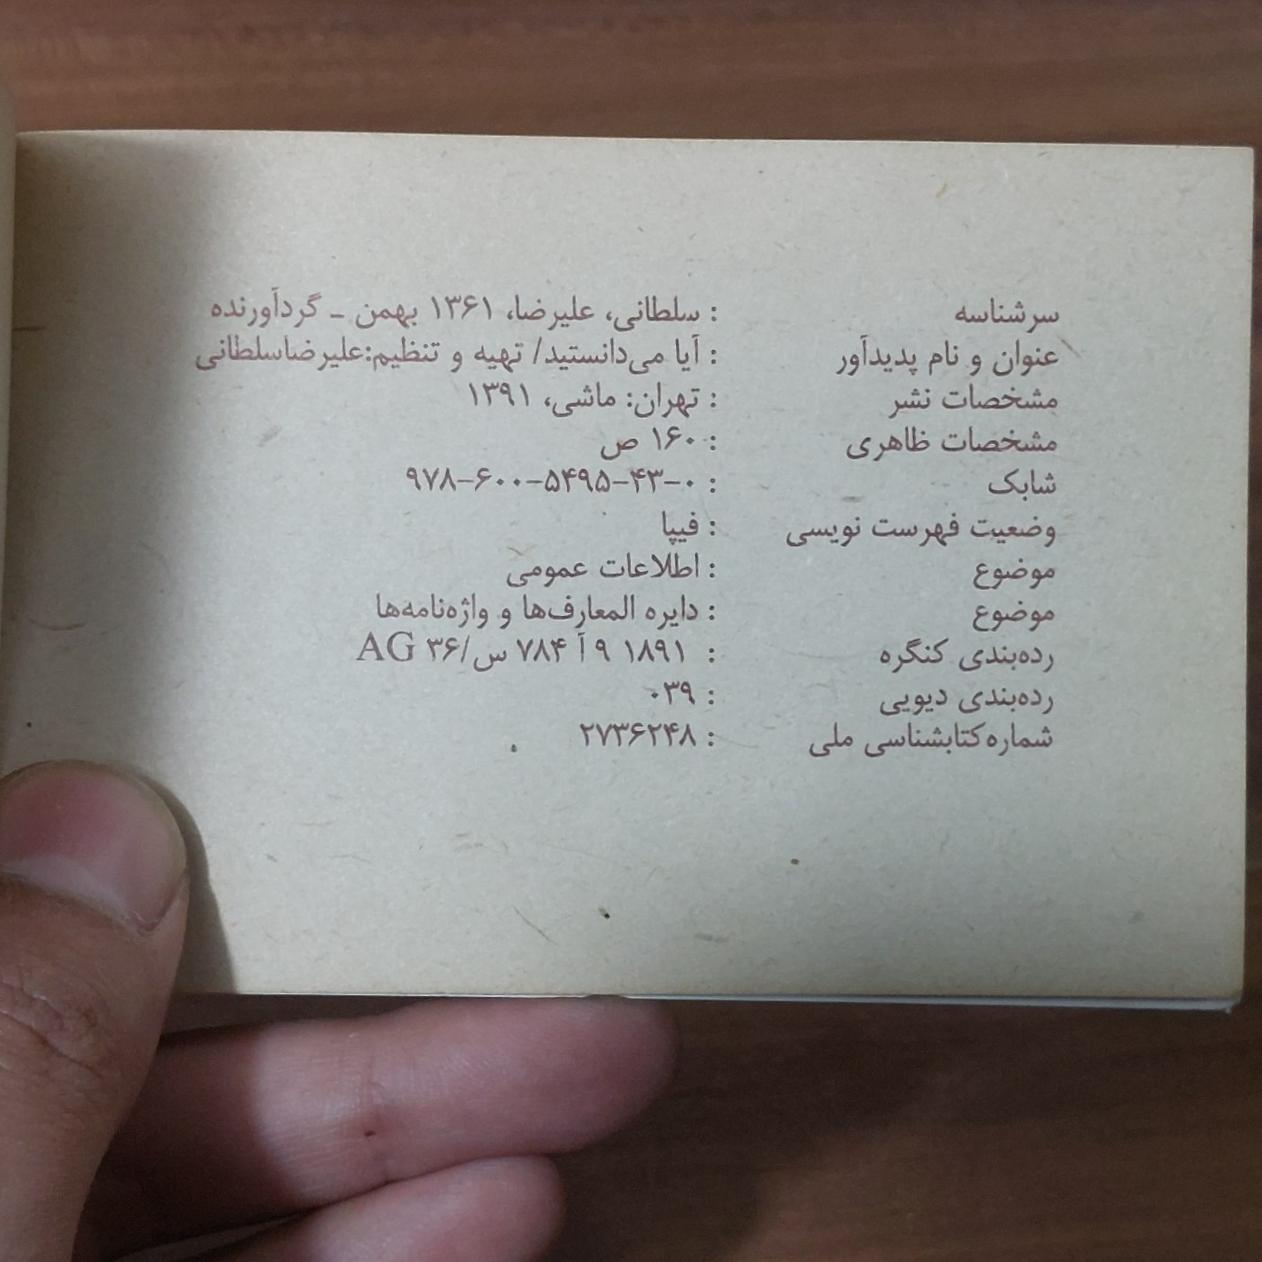 سرشناسه : سلطانی، علیرضا، ۱۳۶۱ بهمن ـ گردآورنده
عنوان و نام پدیدآور : آیا می‌دانستید/ تهیه و تنظیم:علیرضاسلطانی
مشخصات نشر : تهران: ماشی، ۱۳۹۱
مشخصات ظاهری : ۱۶۰ ص
شابک : ۹۷۸-۶۰۰-۵۴۹۵-۴۳-۰
وضعیت فهرست نویسی : فیپا
موضوع : اطلاعات عمومی
موضوع : دایره المعارف‌ها و واژه‌نامه‌ها
رده‌بندی کنگره : ۱۸۹۱ ۹ آ ۷۸۴ س/۳۶ AG
رده‌بندی دیویی : ۰۳۹
شماره‌کتابشناسی ملی : ۲۷۳۶۲۴۸